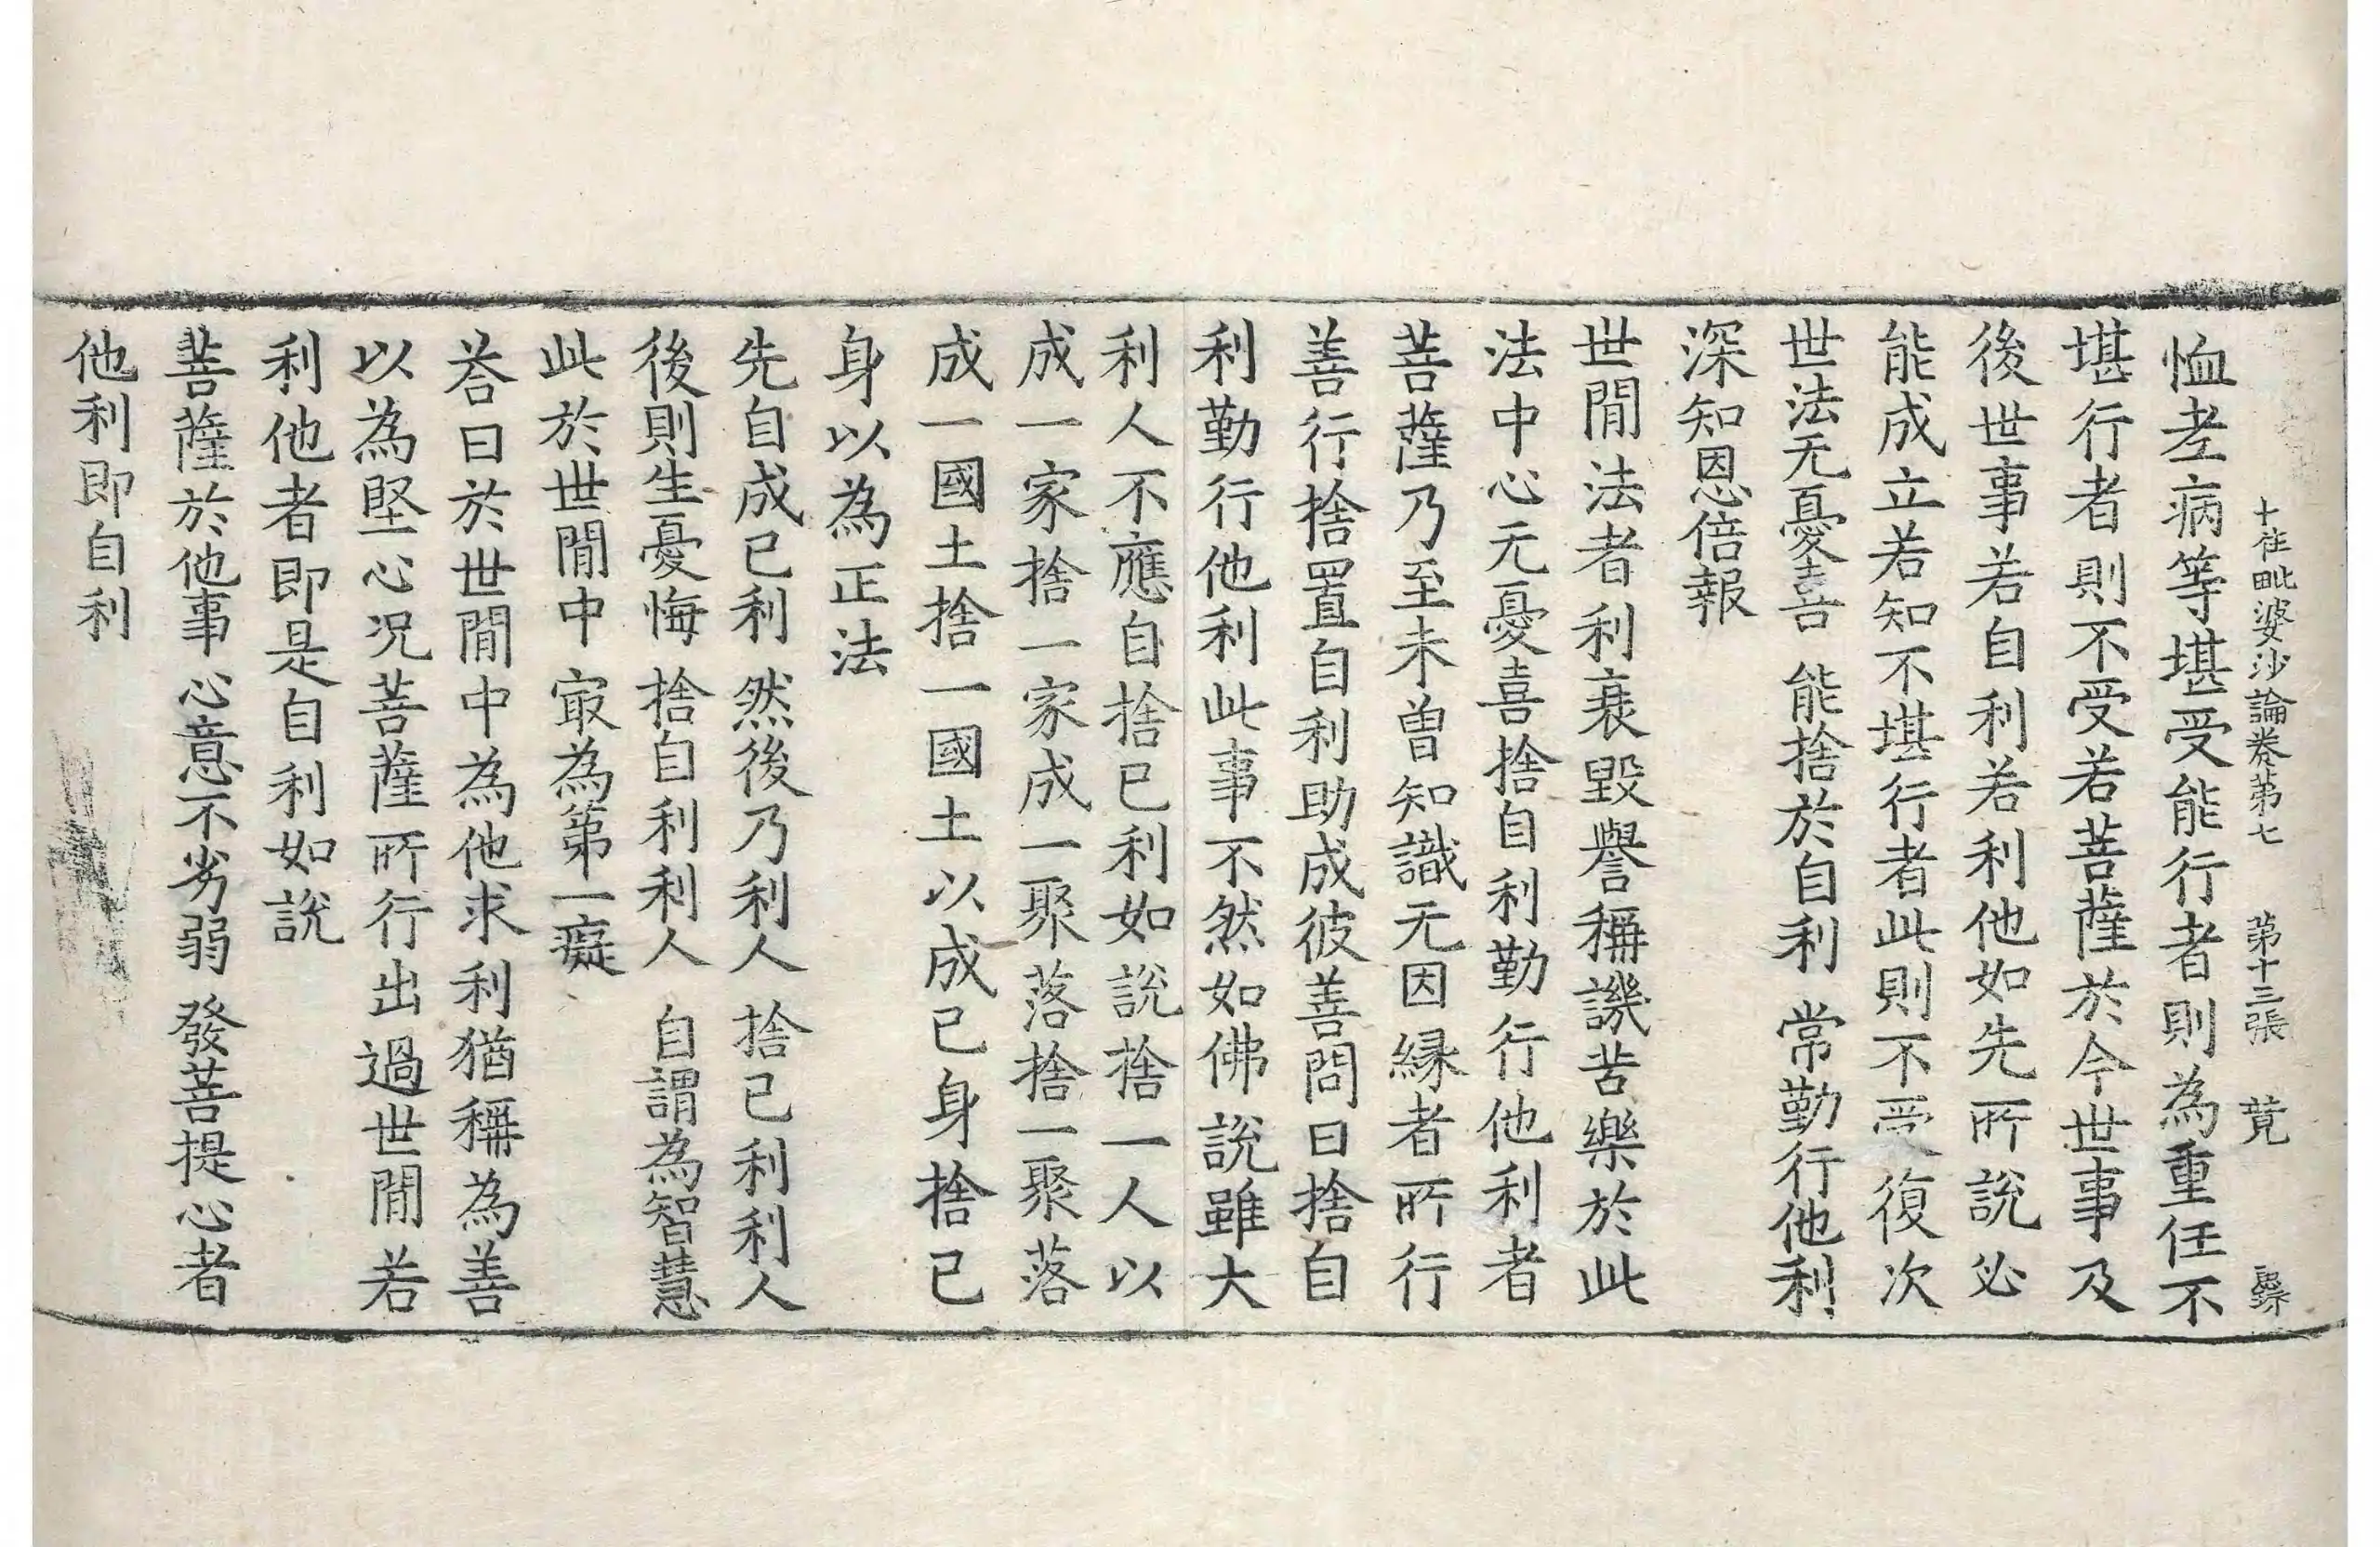 十住毗婆沙論卷第七　第十三張　萖
恤老病等堪受能行者則為重任不
堪行者則不受若菩薩於今世事及
後世事若自利若利他如先所說必
能成立若知不堪行者此則不受復次
世法无憂喜　能捨於自利　常勤行他利
深知恩倍報
世閒法者利衰毀譽稱譏苦樂於此
法中心无憂喜捨自利勤行他利者
菩薩乃至未曾知識无因緣者所行
善行捨置自利助成彼善問曰捨自
利勤行他利此事不然如佛說雖大
利人不應自捨己利如說捨一人以
成一家捨一家成一聚落捨一聚落
成一國土捨一國土以成己身捨己
身以為正法
先自成己利　然後乃利人　捨己利利人
後則生憂悔　捨自利利人　自謂為智慧
此於世閒中　㝡為第一癡
荅曰於世閒中為他求利猶稱為善
以為堅心况菩薩所行出過世閒若
利他者即是自利如說
菩薩於他事　心意不劣弱　發菩提心者
他利即自利